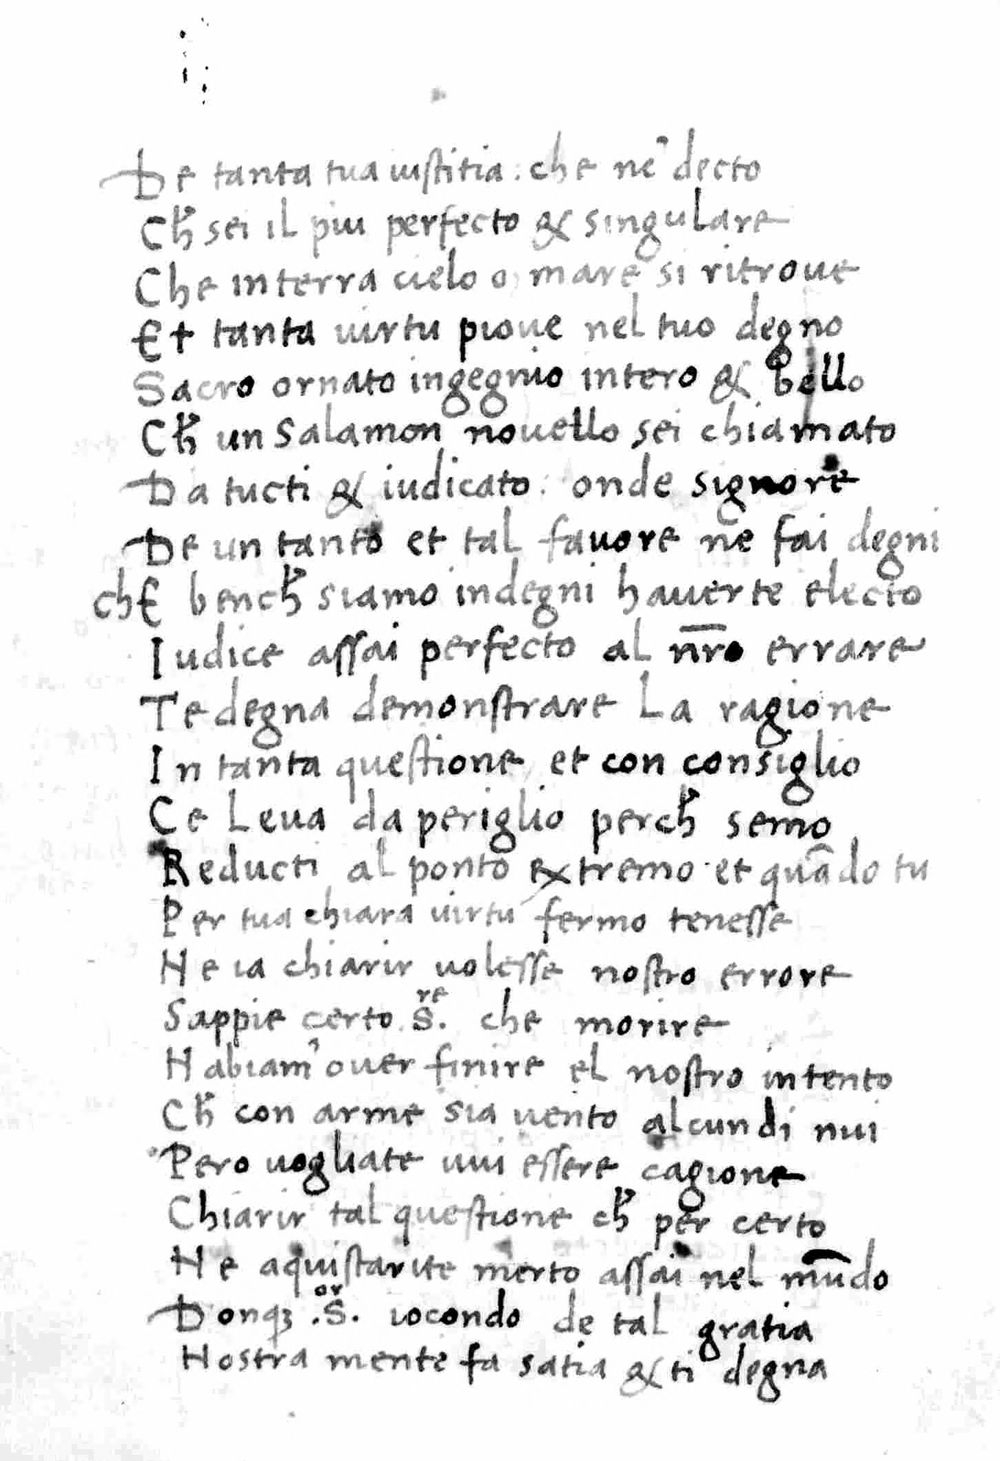 De tanta tua iustitia: che ne decto
Ch sei il piu perfecto & singulare
Che interra cielo o mare si ritroue
Et tanta uirtu pioue nel tuo degno
Sacro ornato ingegnio intero & bello
Ch un Salamon nouello sei chiamato
Da tucti & iudicato. onde signore
De un tanto et tal fauore ne fai degni
chE bench siamo indegni hauerte electo
Iudice assai perfecto al nr̄o errare
Te degna demonstrare La ragione
In tanta questione et con consiglio
Ce Leua da periglio perch semo
Reducti al ponto extremo et quādo tu
Per tua chiara uirtu fermo tenesse
Ne ia chiarir uolesse nostro errore
Sappie certo S.re che morire
Habiam' ouer finire el nostro intento
Ch con arme sia uento alcun di nui
Pero uogliate uui essere cagione
Chiarir tal questione ch per certo
Ne aquistarite merto assai nel mūdo
Donqꝫ .S.or iocondo de tal gratia
Nostra mente fa satia & ti degna